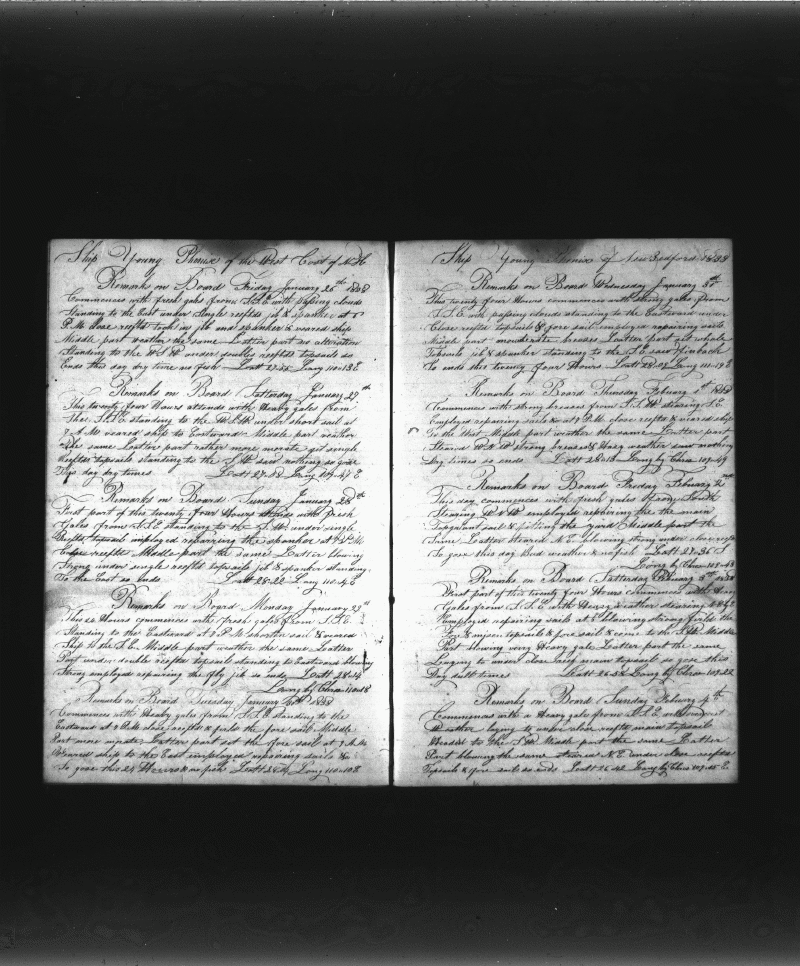 Ship Young Phenix of the West Cost of N. H
Remarks on Board Friday January 26th 1838
Commences with fresh gales from S.S.E with passing clouds
Standing to the East under Single reefted job & spanker at
P.M. close reefts took in job and spanker & weared ship
Middle part weather the same Latter part no alteration
Standing to the W.S.W under doubble reefted topsails so
Ends this day dry time no fish Latt 27-55 Long 110-13 E
Remarks on Board Satturday January 27th
This twenty four Hours attends with Heavy gales from
The S.S.E standing to the W.S.W under short sail at
A.M weared ship to Eastward Middle part weather
the same Latter part rather more morate got single
Reeftes topsails standing to the S.W saw nothing so goes
This day dry times Latt 27-58 Long 109-47 E
Remarks on Board Sunday January 28th
First part of this twenty four Hours attends with fresh
Gales from S.S.E standing to the S.W. under single
Reefts topsails imployed repairring the spanker at P.M.
Close reefted Middle part the same Latter blowing
Strong under single reefted topsails job & spanker standing
To the East so ends Latt 28-22 Long 110-4 E
Remarks on Board Monday January 29th
This 24 Hours commences with fresh gales from S.S.E.
Standing to the Eastward at 8 P.M. shorten sail & weared
Ship to the S.E. Middle part weather the same Latter
Part under double reefted topsails standing to Eastward blowing
Strong employed repairing the fly job so ends Latt 28-14
Long by Chron 110-18
Remarks on Board Tuesday January 30th 1838
Commences with Heavy gales from S.S.E standing to the
Eastward at P.M. close reefts & furld the fore sail Middle
Part more modrate Latter part set the fore sail at 9 A.M
Weared ship to the East imployed repairing sails &c
So goes this 24 Hours & no fish Latt 28-4 Long 110-108
Ship Young Phenix of New Bedford 1838
Remarks on Board Wednesday January 31th
This twenty four Hours commences with strong gales from
S.S.E with passing clouds standing to the Eastward under
Close reefts topsails & fore sail employed repairing sails
Middle part mouderate breeses Latter part out whole
Topsails job & spanker standing to the S.E saw finback
So ends this twenty four Hours Latt 28-08 Long 111-19 E
Remarks on Board Thursday Febuary 1st 1838
Commences with strong breases from S.S.W. stearing S.E
Employed repairing sails & at 7 P.M. close reefts & weared ship
To the West Middle part weather the same Latter part
Steard W.N.W strong breases & Hazy weather saw nothing
Dry times so ends Latt 28-13 Long by Chron 109-49
Remarks on Board Friday Febuary 2nd
This day commences with fresh gales from South
Stearing W.N.W employed repairing the the main
Topgant sail & fitting the yard Middle part the
Same Latter steared N.E blowing strong under close reefts
So goes this day Bad weather & no fish Latt 27-36 S
Long by Chron 108-48
Remarks on Board Satturday Febuary 3th 1838
First part of this twenty four Hours commences with Heavy
Gales from S.S.E with Heavy weather stearing
Employed repairing sails at blowing strong furld the
Jor & mison topsails & fore sail & come to the S.W Middle
Part blowing very Heavy gale Latter part the same
Laying to under close reefts main topsail so goes this
Day salt times Latt 26-58 Long by Chron 109-22
Remarks on Board Sunday Febuary 4th
Commences with a Heavy gale from S.S.E
Weather laying to under close reefts main topsail
Headed to the S.W Middle part the same Latter
Part blowing the same steared N.E under close reefted
Topsails & fore sail so ends Latt 26-42 Long by Chron 109-45 E